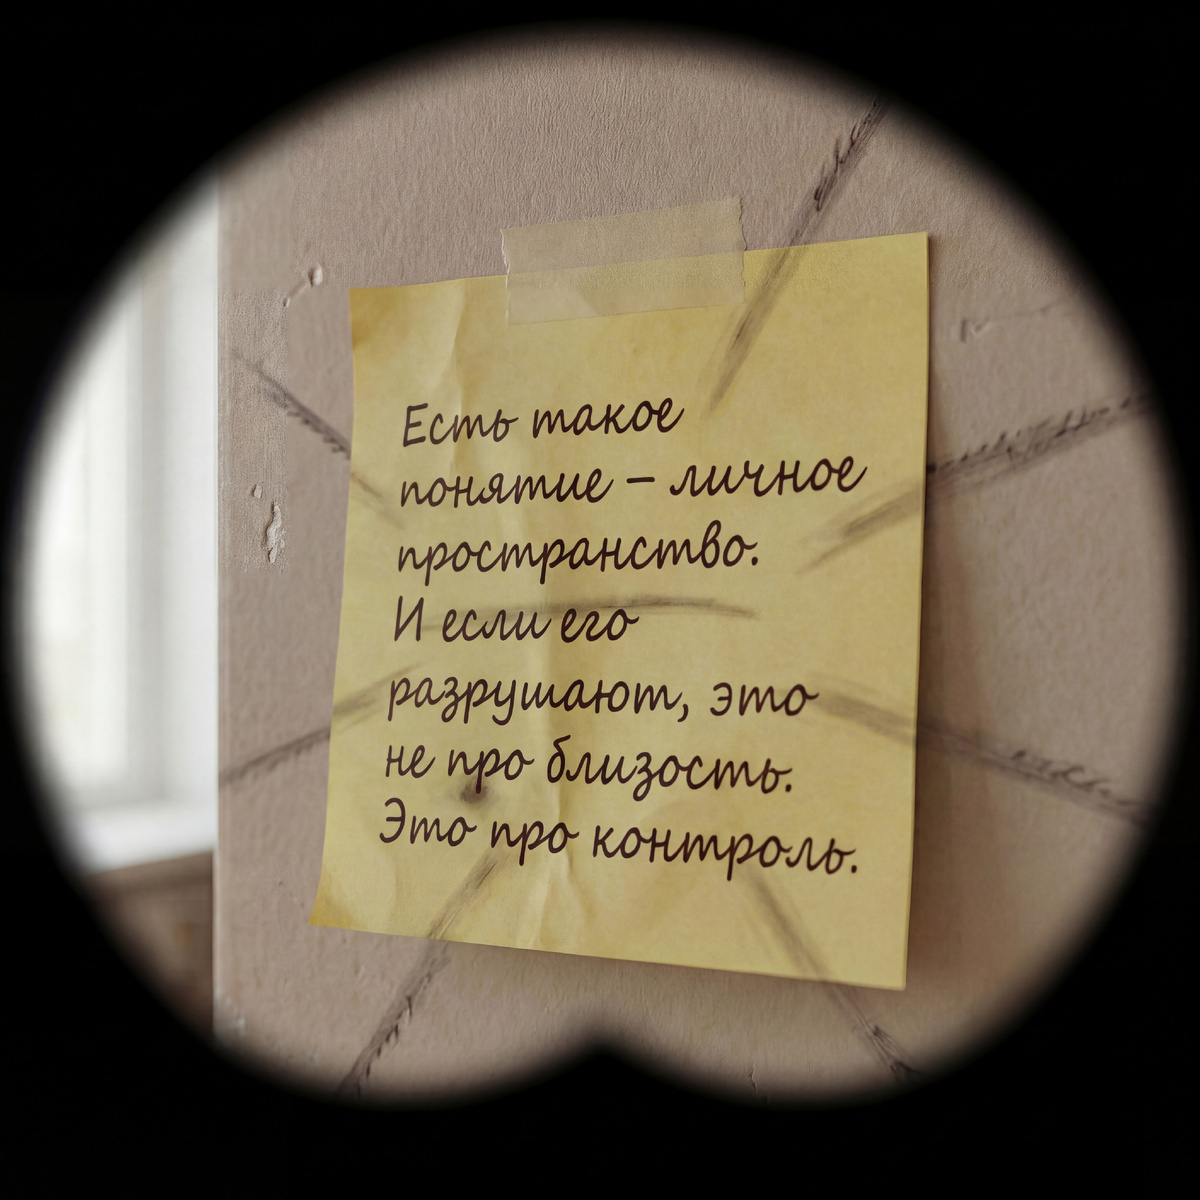 Есть такое
понятие – личное
пространство.
И если его
разрушают, это
не про близость.
Это про контроль.